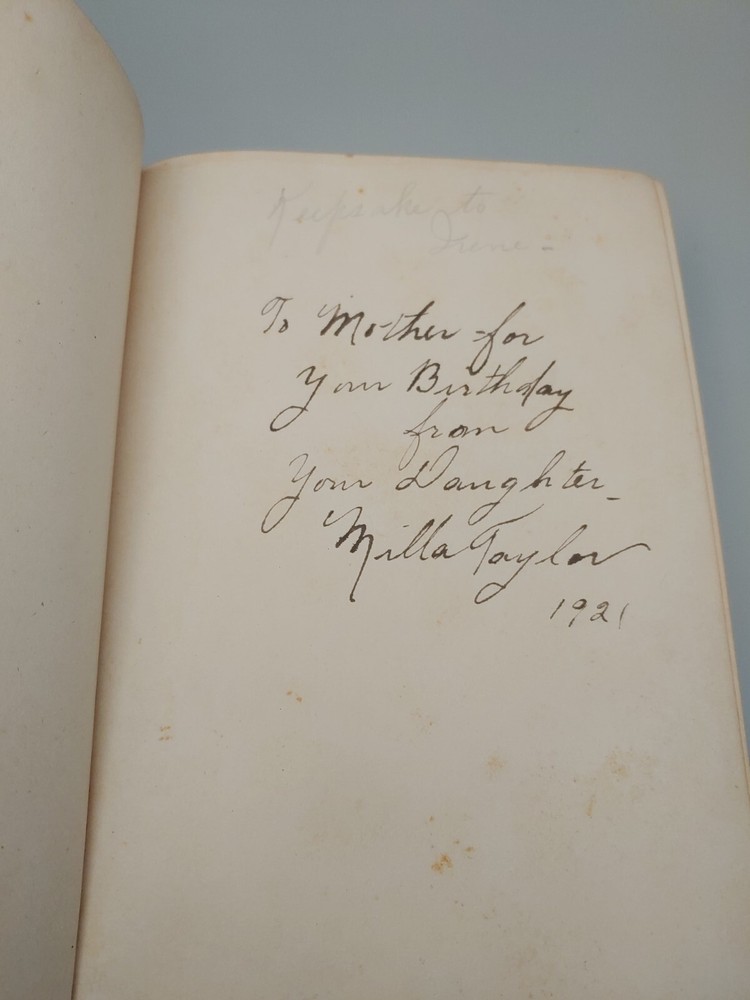 Keepsake to
June -
To Mother - for
Your Birthday
from
Your Daughter -
Milla Taylor
1921